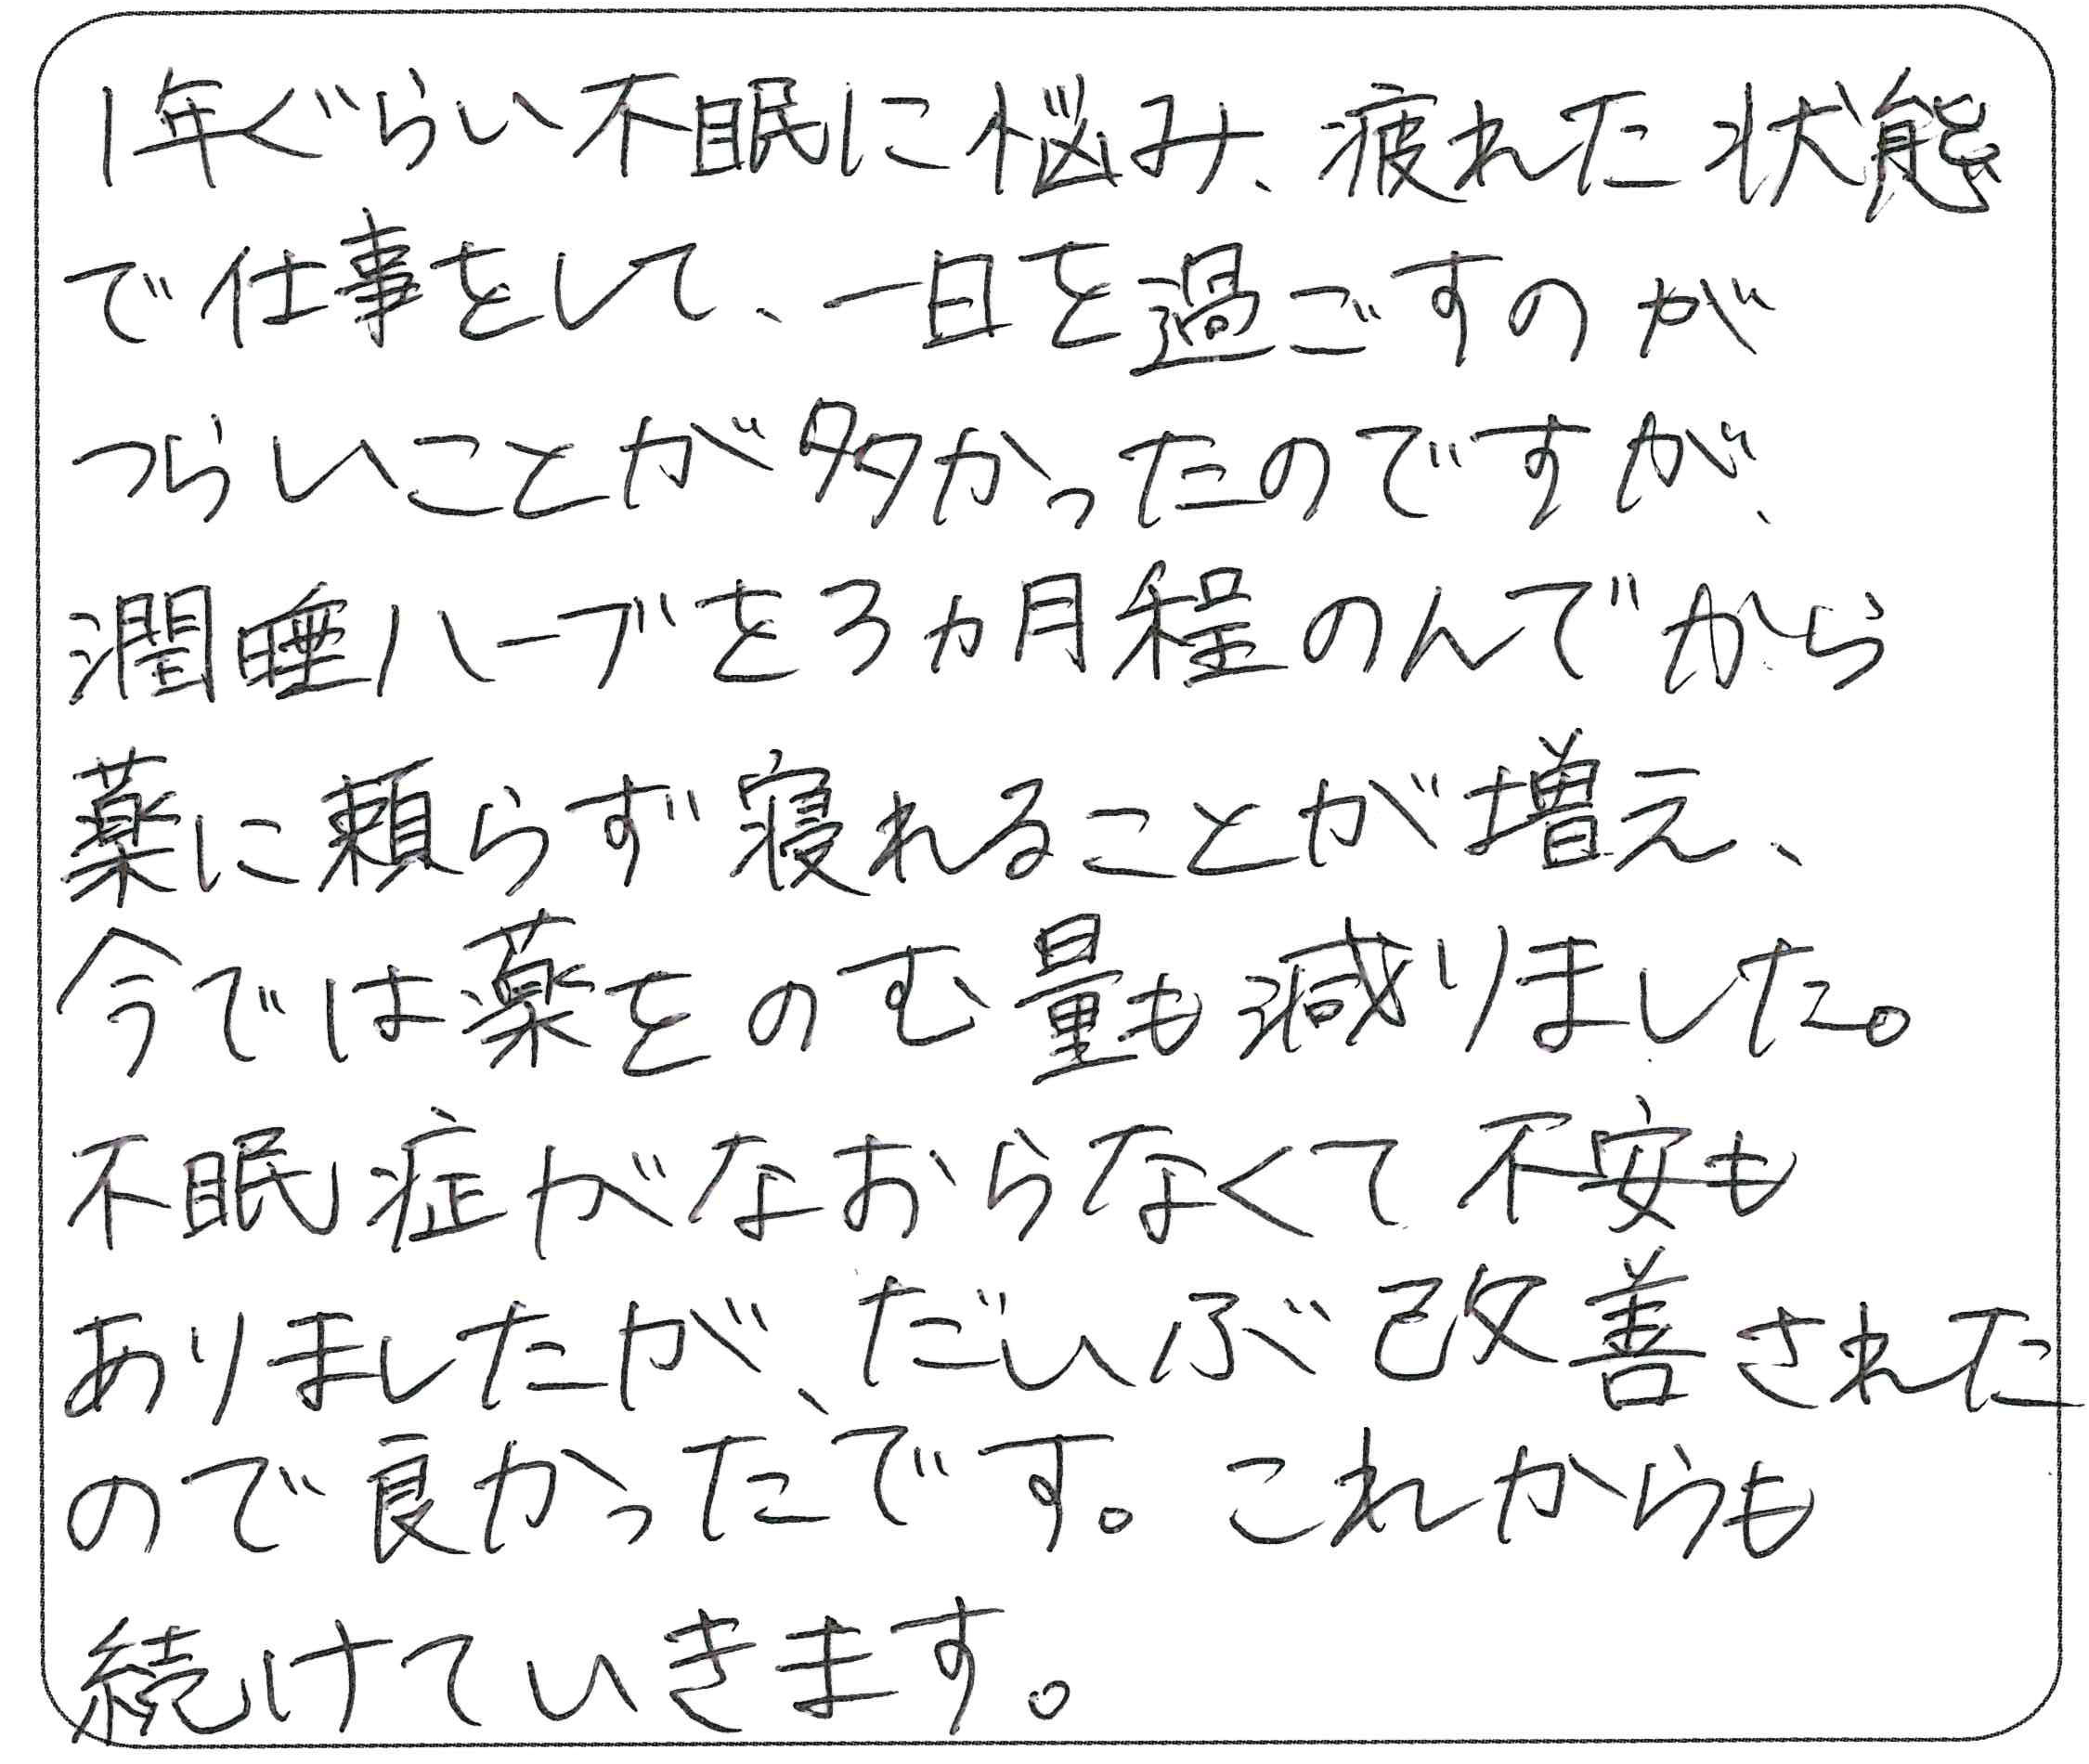 1年ぐらい不眠に悩み、疲れた状態
で仕事をして、一日を過ごすのが
つらいことが多かったのですが、
潤睡ハーブを3ヵ月程のんでから
薬に頼らず寝れることが増え、
今では薬をのむ量も減りました。
不眠症がなおらなくて不安も
ありましたが、だいぶ改善された
ので良かったです。これからも
続けていきます。